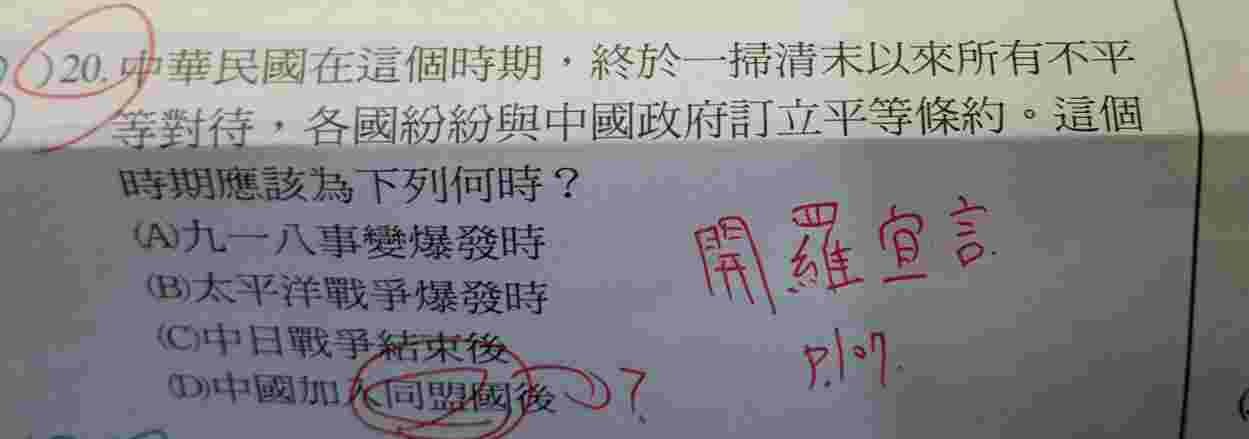 ( )20.中華民國在這個時期，終於一掃清末以來所有不平
等對待，各國紛紛與中國政府訂立平等條約。這個
時期應該為下列何時？
(A)九一八事變爆發時
(B)太平洋戰爭爆發時
(C)中日戰爭結束後
(D)中國加入同盟國後
?
開羅宣言
p.107.